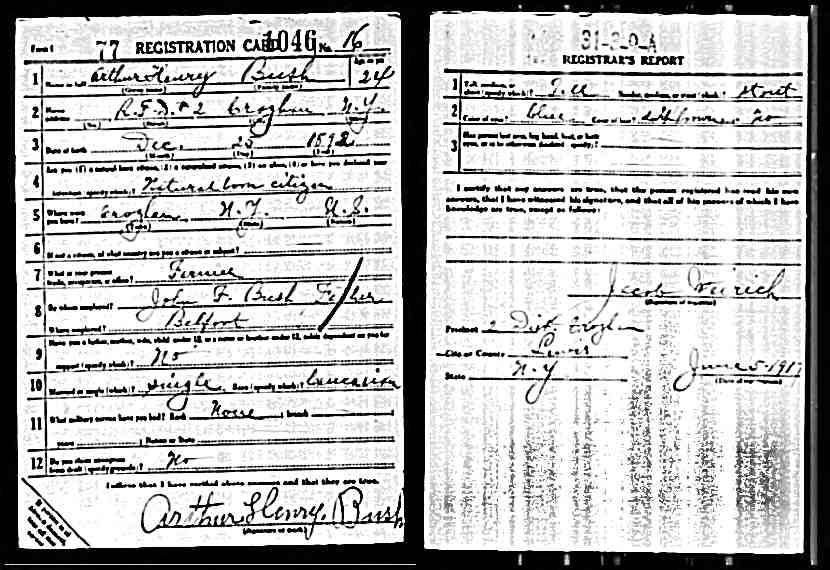 Form 1 77 REGISTRATION CARD 1046 No. 16
1 Name in full Arthur Henry Bush Age, in yrs 24
(Given name) (Family name)
2 Home address R.F.D. # 2 Croghan N.Y.
(No.) (Street) (City) (State)
3 Date of birth Dec. 25 1892
(Month) (Day) (Year)
Are you (1) a natural-born citizen, (2) a naturalized citizen, (3) an alien, (4) or have you declared your
4 intention (specify which)? Natural born citizen
5 Where were you born? Croghan N.Y. U.S.
(Town) (State) (Nation)
6 If not a citizen, of what country are you a citizen or subject?
7 What is your present trade, occupation, or office? Farmer
8 By whom employed? John F. Bush Father
Where employed? Belfort
Have you a father, mother, wife, child under 12, or a sister or brother under 12, solely dependent on you for
9 support (specify which)? No
10 Married or single (which)? Single Race (specify which)? Caucasian
11 What military service have you had? Rank None ; branch
years ; Nation or State
12 Do you claim exemption from draft (specify grounds)? No
I affirm that I have verified above answers and that they are true.
Arthur Henry Bush
(Signature or mark)
31-2-9-A
REGISTRAR'S REPORT
1 Tall, medium, or short (specify which)? Tall Slender, medium, or stout (which)? Stout
2 Color of eyes? Blue Color of hair? No
3 Has person lost arm, leg, hand, foot, or both eyes, or is he otherwise disabled (specify)?
I certify that my answers are true, that the person registered has read his own
answers, that I have witnessed his signature, and that all of his answers of which I have
knowledge are true, except as follows:
Jacob Weirich
(Signature of registrar)
Precinct 2 Dist. Croghan
City or County Lewis
State N.Y. June 5 - 1917
(Date of registration)